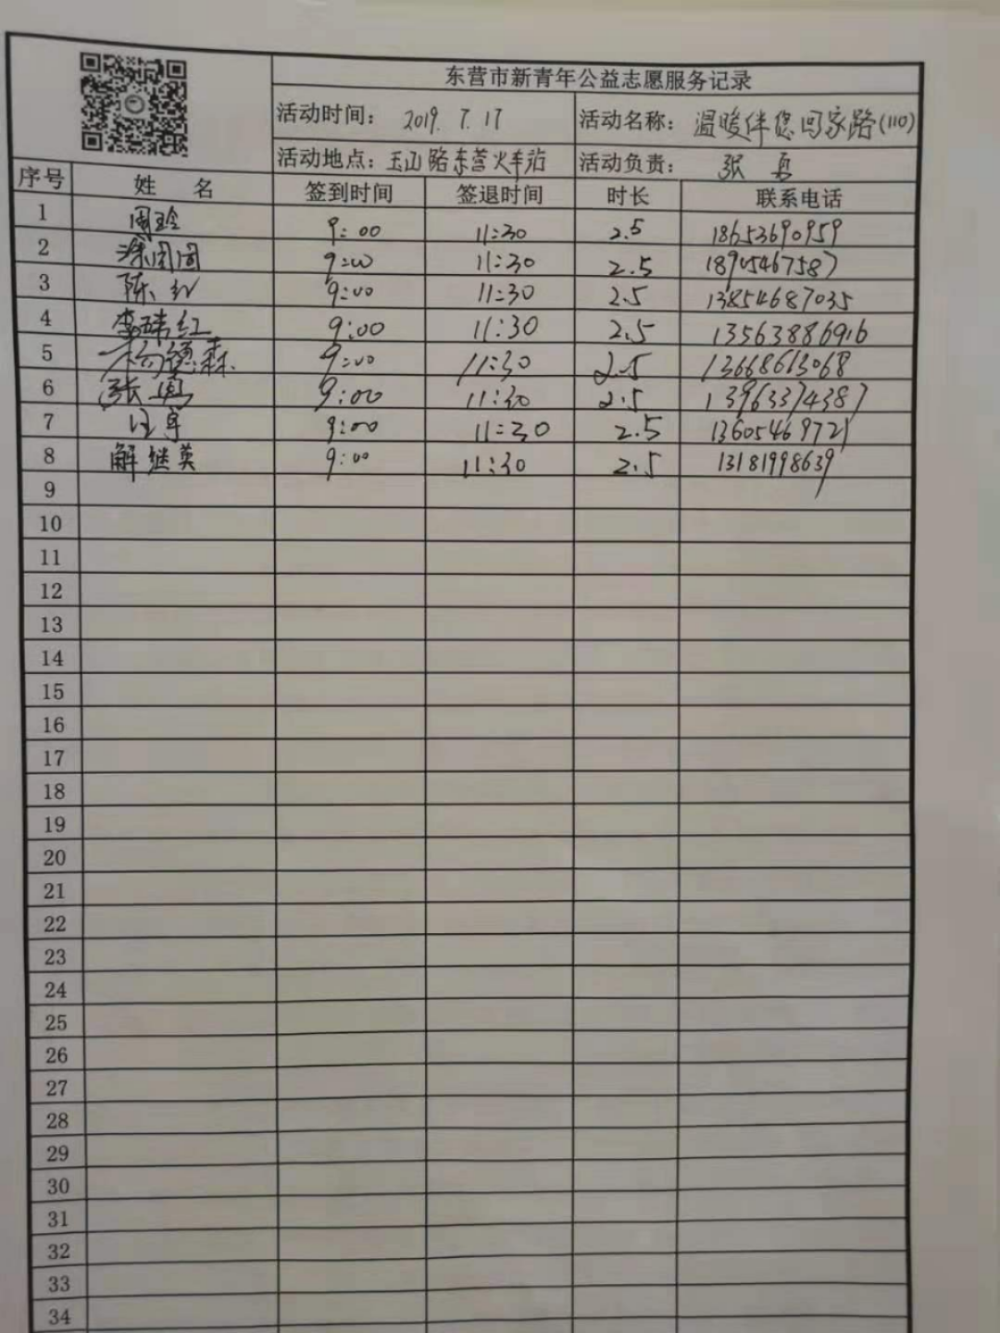 东营市新青年公益志愿服务记录
活动时间： 2019. 7. 17 活动名称： 温暖伴您回家路(110)
活动地点： 玉山路东营火车站 活动负责： 张勇
序号 姓 名 签到时间 签退时间 时长 联系电话
1 周玲 9:00 11:30 2.5 18653690959
2 9:00 11:30 2.5
3 陈红 9:00 11:30 2.5 13854687035
4 李玮红 9:00 11:30 2.5 13563886916
5 杨德森 9:00 11:30 2.5 13668613068
6 张勇 9:00 11:30 2.5 13963374387
7 9:00 11:30 2.5 13605469721
8 解继英 9:00 11:30 2.5 13181998639
9
10
11
12
13
14
15
16
17
18
19
20
21
22
23
24
25
26
27
28
29
30
31
32
33
34